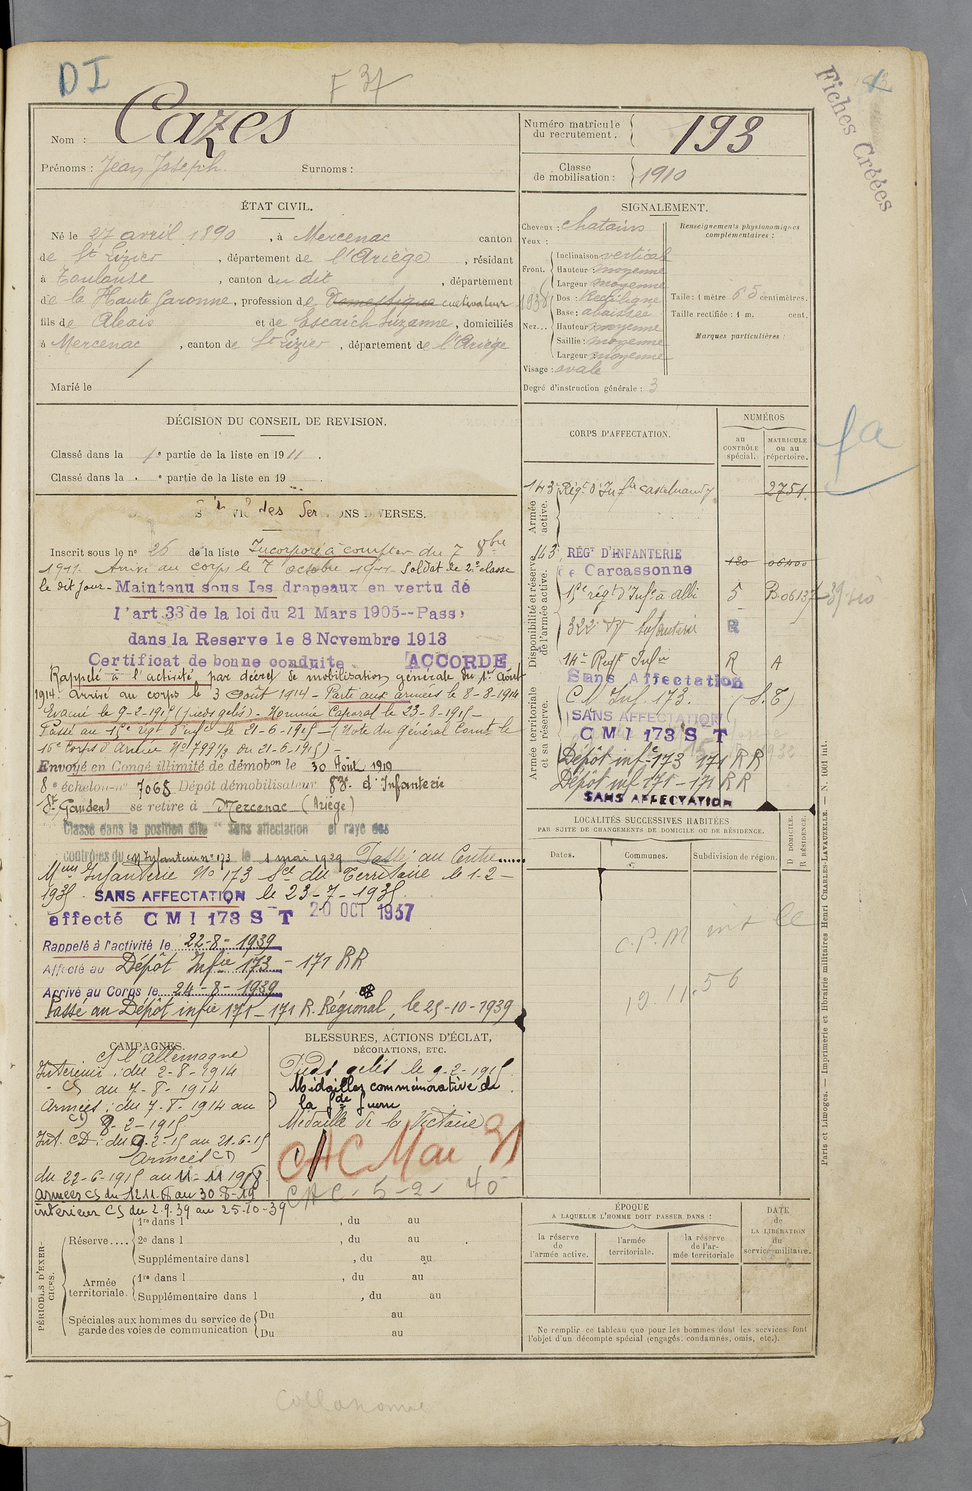 DI
F 37
Fiches Créées
Nom : Cazes
Prénoms : Jean Joseph Surnoms :
Numéro matricule du recrutement. 193
Classe de mobilisation : 1910
ÉTAT CIVIL.
Né le 27 avril 1890, à Mercenac canton
de St Lizier, département de l'Ariège, résidant
à Toulouse, canton du dit, département
de la Haute Garonne, profession de Domestique cultivateur
fils de Alexis et de Escaich Suzanne, domiciliés
à Mercenac, canton de St Lizier, département de l'Ariège
Marié le
SIGNALEMENT.
Cheveux : chatains
Yeux :
Front. Inclinaison verticale
Hauteur moyenne
Largeur moyenne
Nez... Dos : Rectiligne
Base : abaissée
Hauteur moyenne
Saillie : moyenne
Largeur moyenne
Visage : ovale
Degré d'instruction générale : 3
Renseignements physionomiques complémentaires :
Taille : 1 mètre 65 centimètres.
Taille rectifiée : 1 m. cent.
Marques particulières :
DÉCISION DU CONSEIL DE REVISION.
Classé dans la 1e partie de la liste en 1911.
Classé dans la e partie de la liste en 19 .
Inscrit sous le no 26 de la liste Incorporé à compter du 7 8bre
1911. Arrivé au corps le 7 octobre 1911 Soldat de 2e classe
le dit jour. Maintenu sous les drapeaux en vertu de
l'art 33 de la loi du 21 Mars 1905--Passé
dans la Reserve le 8 Novembre 1913
Certificat de bonne conduite ACCORDE
Rappelé à l'activité par décret de mobilisation générale du 1er Août
1914. Arrivé au corps le 3 Août 1914 - Parti aux armées le 8-8-1914
Evacué le 9-2-1915 (pieds gelés) - Nommé Caporal le 23-8-1915 -
Passé au 15e régt d'infie le 21-6-1915 (Note du Général Comt le
16e Corps d'Armée No 1799 1/2 du 21-6-1915) -
Envoyé en Congé illimité de démobon le 30 Août 1919
8e échelon-no 7068 Dépôt démobilisateur 83e d'Infanterie
St Gaudens se retire à Mercenac (Ariège)
Classé dans la position dite "Sans affectation et rayé des
contrôles du CM Infanterie no 173 le 1 mai 1929 Passé au Centre
Infanterie No 173 Sce du Territoire le 1-2-
1935 SANS AFFECTATION le 23-7-1935
affecté CMI 173 S T 20 OCT 1937
Rappelé à l'activité le 22-8-1939
Affecté au Dépôt Infie 173 - 171 RR
Arrivé au Corps le 24-8-1939
Passé au Dépôt infie 171 - 171 R. Régional, le 25-10-1939
CORPS D'AFFECTATION.
NUMÉROS
au CONTRÔLE spécial.
MATRICULE ou au répertoire.
Armée active.
143e Régt d'Infie Castelnaudary 2751
Disponibilité et réserve de l'armée active.
143e RÉGT D'INFANTERIE
de Carcassonne
15e régt d'Infie à Albi 5 B06137
322e Rgt Infanterie R
14e Regt Infie R A
Sans Affectation
Armée territoriale et sa réserve.
CM Inf. 173. (S.T)
SANS AFFECTATION
CMI 173 S T
Dépôt infie 173 171 RR
Dépôt inf 171 - 171 RR
SANS AFFECTATION
LOCALITÉS SUCCESSIVES HABITÉES
PAR SUITE DE CHANGEMENTS DE DOMICILE OU DE RÉSIDENCE.
Dates. Communes. Subdivision de région. D DOMICILE. R RÉSIDENCE.
CAMPAGNES.
C/ l'Allemagne
Intérieur : du 2-8-1914
au 7-8-1914
Armées : du 7-8-1914 au
8-2-1915
Int. CD : du 9-2-15 au 21-6-15
Armées CD
du 22-6-1915 au 11-11 1918
Armées CS du 12.11.18 au 30-8-19
intérieur CS du 2.9.39 au 25-10-39
BLESSURES, ACTIONS D'ÉCLAT,
DÉCORATIONS, ETC.
Pieds gelés le 9-2-1915
Médaille commémorative de
la Gde Guerre
Médaille de la Victoire
CAC Mai 31
CAC 5-2-40
PÉRIODES D'EXERCICES.
Réserve.... 1re dans l , du au
2e dans l , du au
Supplémentaire dans l , du au
Armée territoriale. 1re dans l , du au
Supplémentaire dans l , du au
Spéciales aux hommes du service de garde des voies de communication Du au
Du au
ÉPOQUE
A LAQUELLE L'HOMME DOIT PASSER DANS :
la réserve de l'armée active.
l'armée territoriale.
la réserve de l'armée territoriale
DATE de LA LIBÉRATION du service militaire.
Ne remplir ce tableau que pour les hommes dont les services font
l'objet d'un décompte spécial (engagés, condamnés, omis, etc.).
Paris et Limoges. — Imprimerie et librairie militaires Henri CHARLES-LAVAUZELLE. — N. 1001 Int.